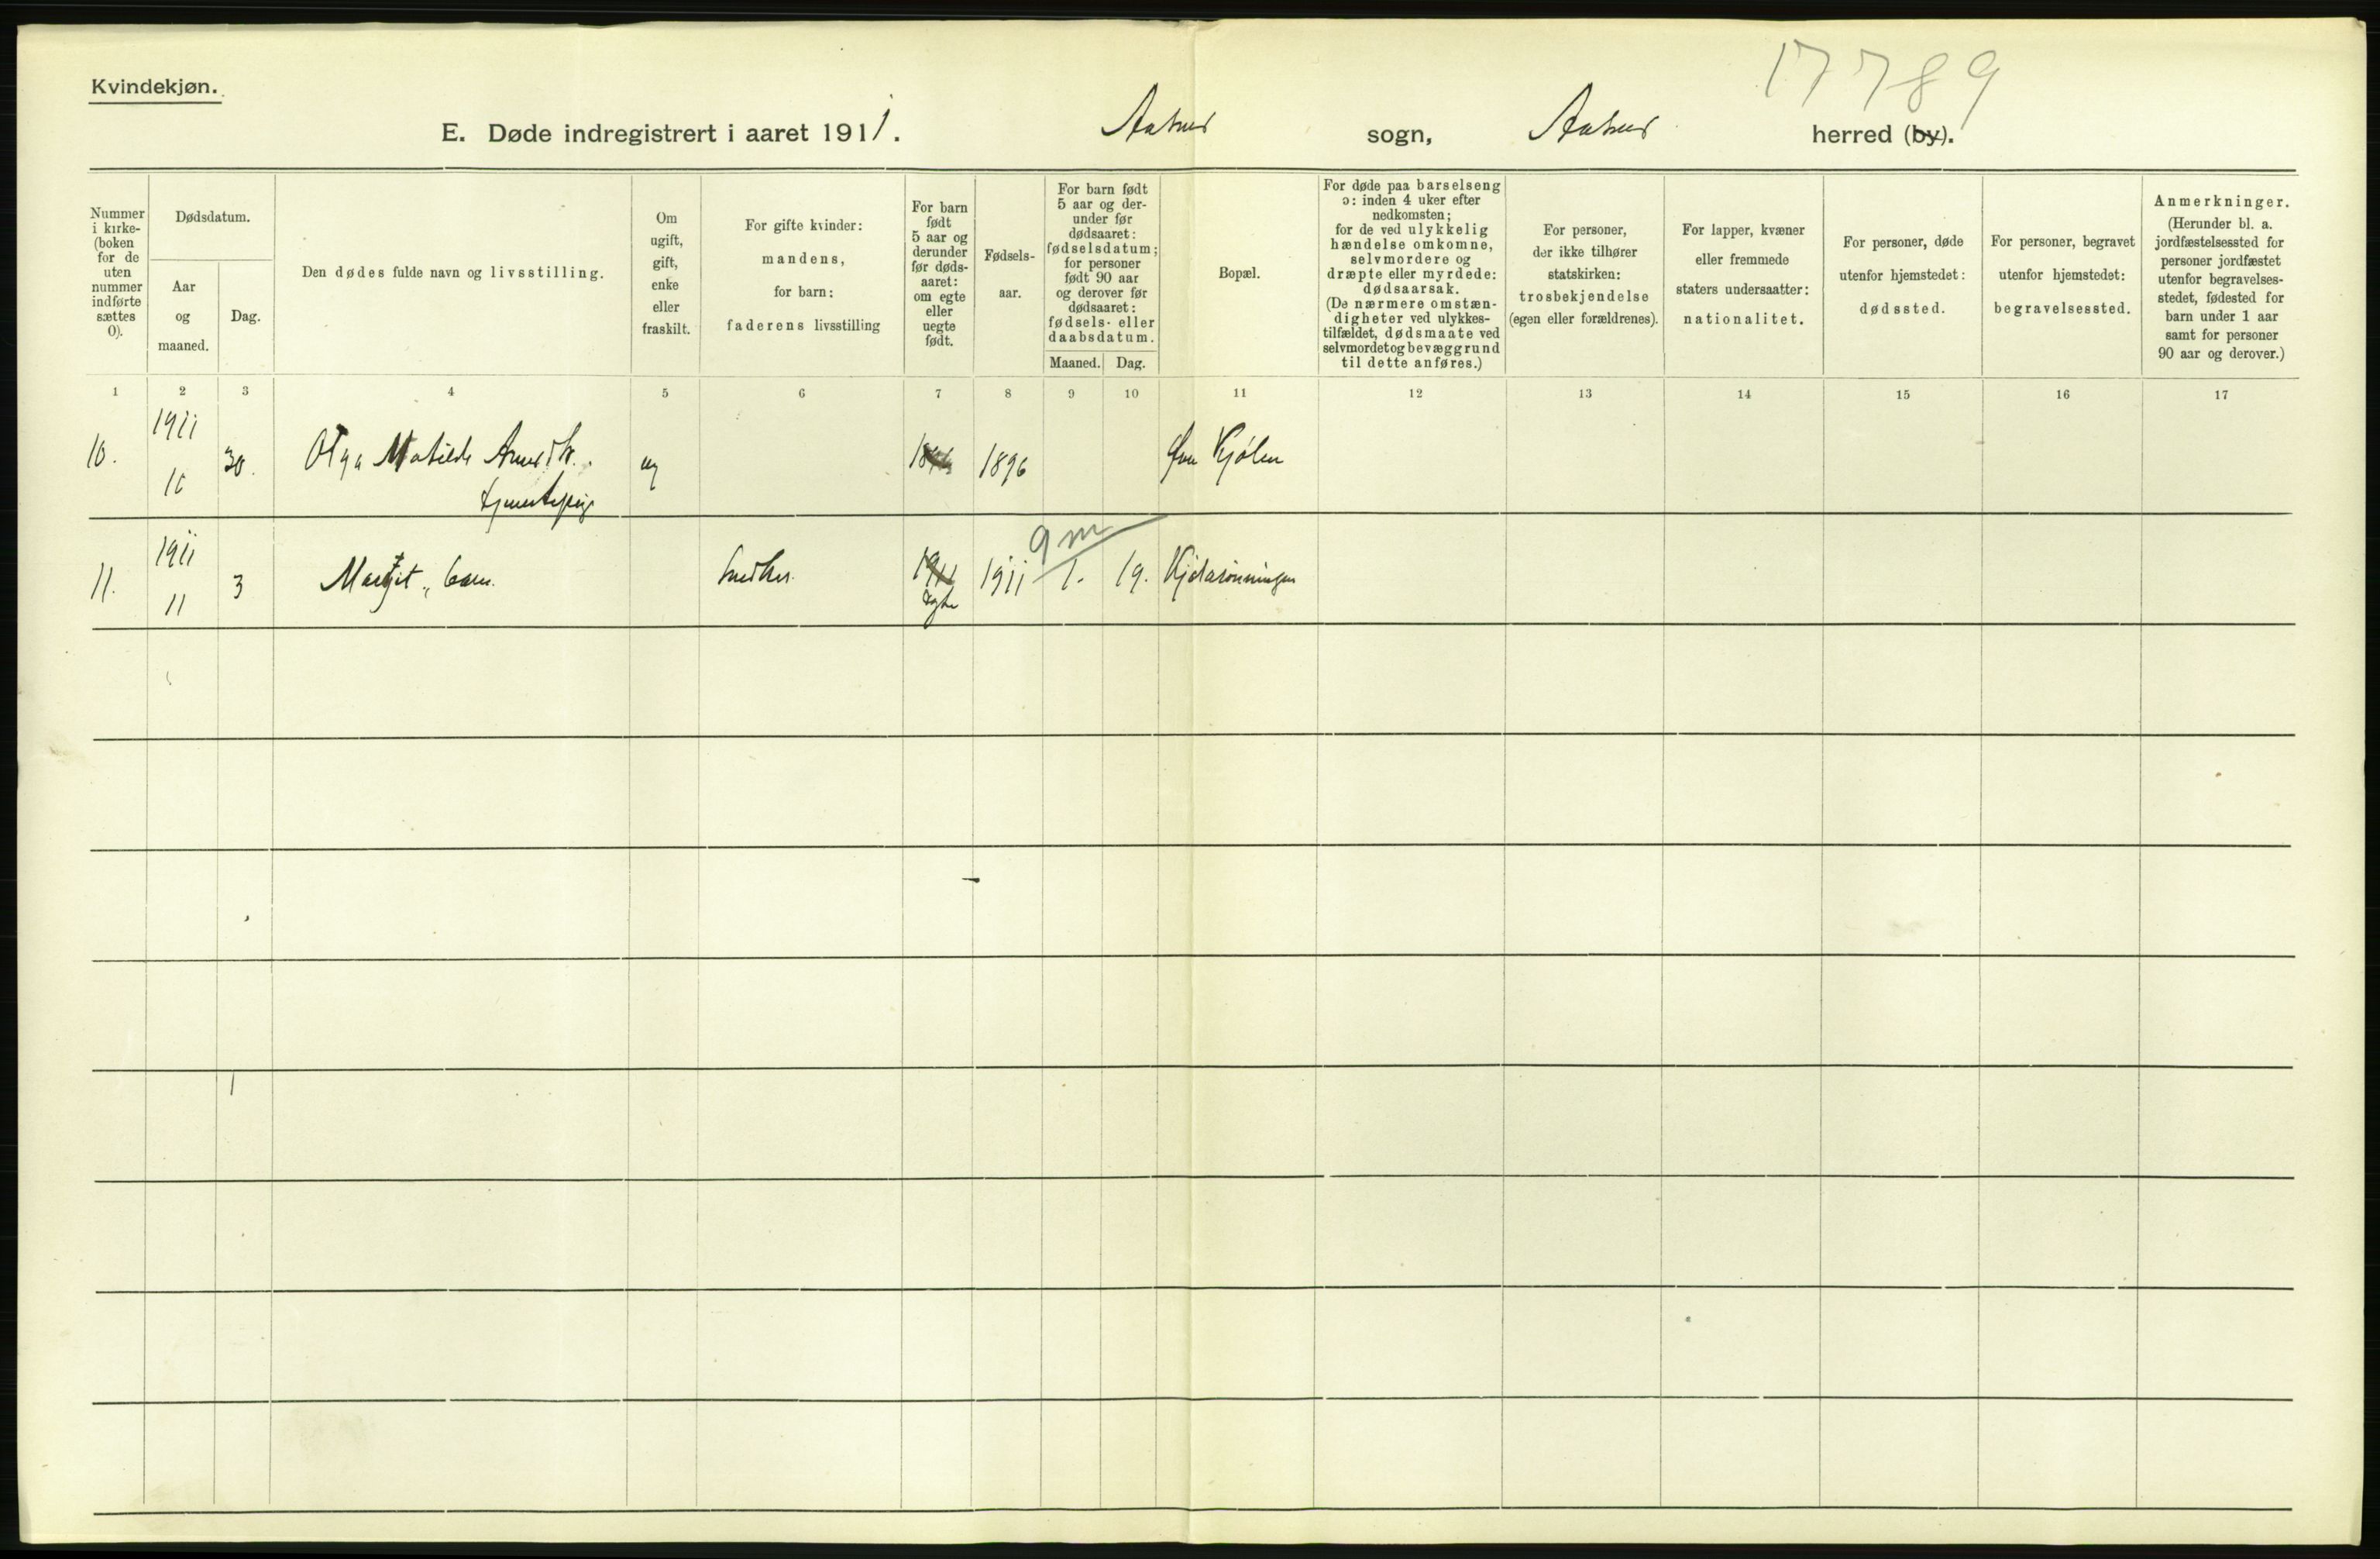 Kvindekjøn.
17789
E. Døde indregistrert i aaret 1911. Aasnes sogn, Aasnes herred (by).
Nummer i kirke- (boken for de uten nummer indførte sættes 0).
Dødsdatum.
Aar og maaned.
Dag.
Den dødes fulde navn og livsstilling.
Om ugift, gift, enke eller fraskilt.
For gifte kvinder: mandens, for barn: faderens livsstilling
For barn født 5 aar og derunder før døds- aaret: om egte eller uegte født.
Fødsels- aar.
For barn født 5 aar og der- under før dødsaaret: fødselsdatum; for personer født 90 aar og derover før dødsaaret: fødsels- eller daabsdatum.
Maaned. Dag.
Bopæl.
For døde paa barselseng ɔ: inden 4 uker efter nedkomsten; for de ved ulykkelig hændelse omkomne, selvmordere og dræpte eller myrdede: dødsaarsak. (De nærmere omstæn- digheter ved ulykkes- tilfældet, dødsmaate ved selvmordet og bevæggrund til dette anføres.)
For personer, der ikke tilhører statskirken: trosbekjendelse (egen eller forældrenes).
For lapper, kvæner eller fremmede staters undersaatter: nationalitet.
For personer, døde utenfor hjemstedet: dødssted.
For personer, begravet utenfor hjemstedet: begravelsessted.
Anmerkninger. (Herunder bl. a. jordfæstelsessted for personer jordfæstet utenfor begravelses- stedet, fødested for barn under 1 aar samt for personer 90 aar og derover.)
1 2 3 4 5 6 7 8 9 10 11 12 13 14 15 16 17
10. 1911 10 30. Olga Matilde ug 1896 Kjølen
9 m
11. 1911 11 3 Margit, barn. Snedker. 1911 egte 1911 1. 19. Kjelarönningen